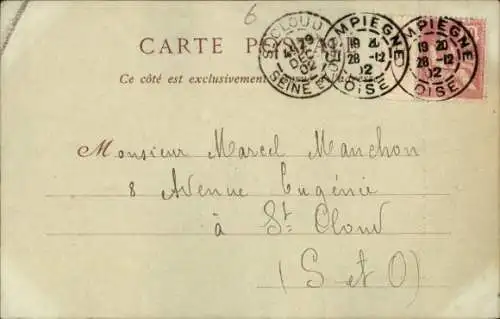 6
CARTE POSTALE
Ce côté est exclusivement adresse
ST CLOUD
SEINE ET OISE
COMPIEGNE
19 20
28 -12
02
OISE
COMPIEGNE
19 20
28 -12
02
OISE
Monsieur Marcel Manchon
8 Avenue Eugénie
à St Cloud
(S et O)